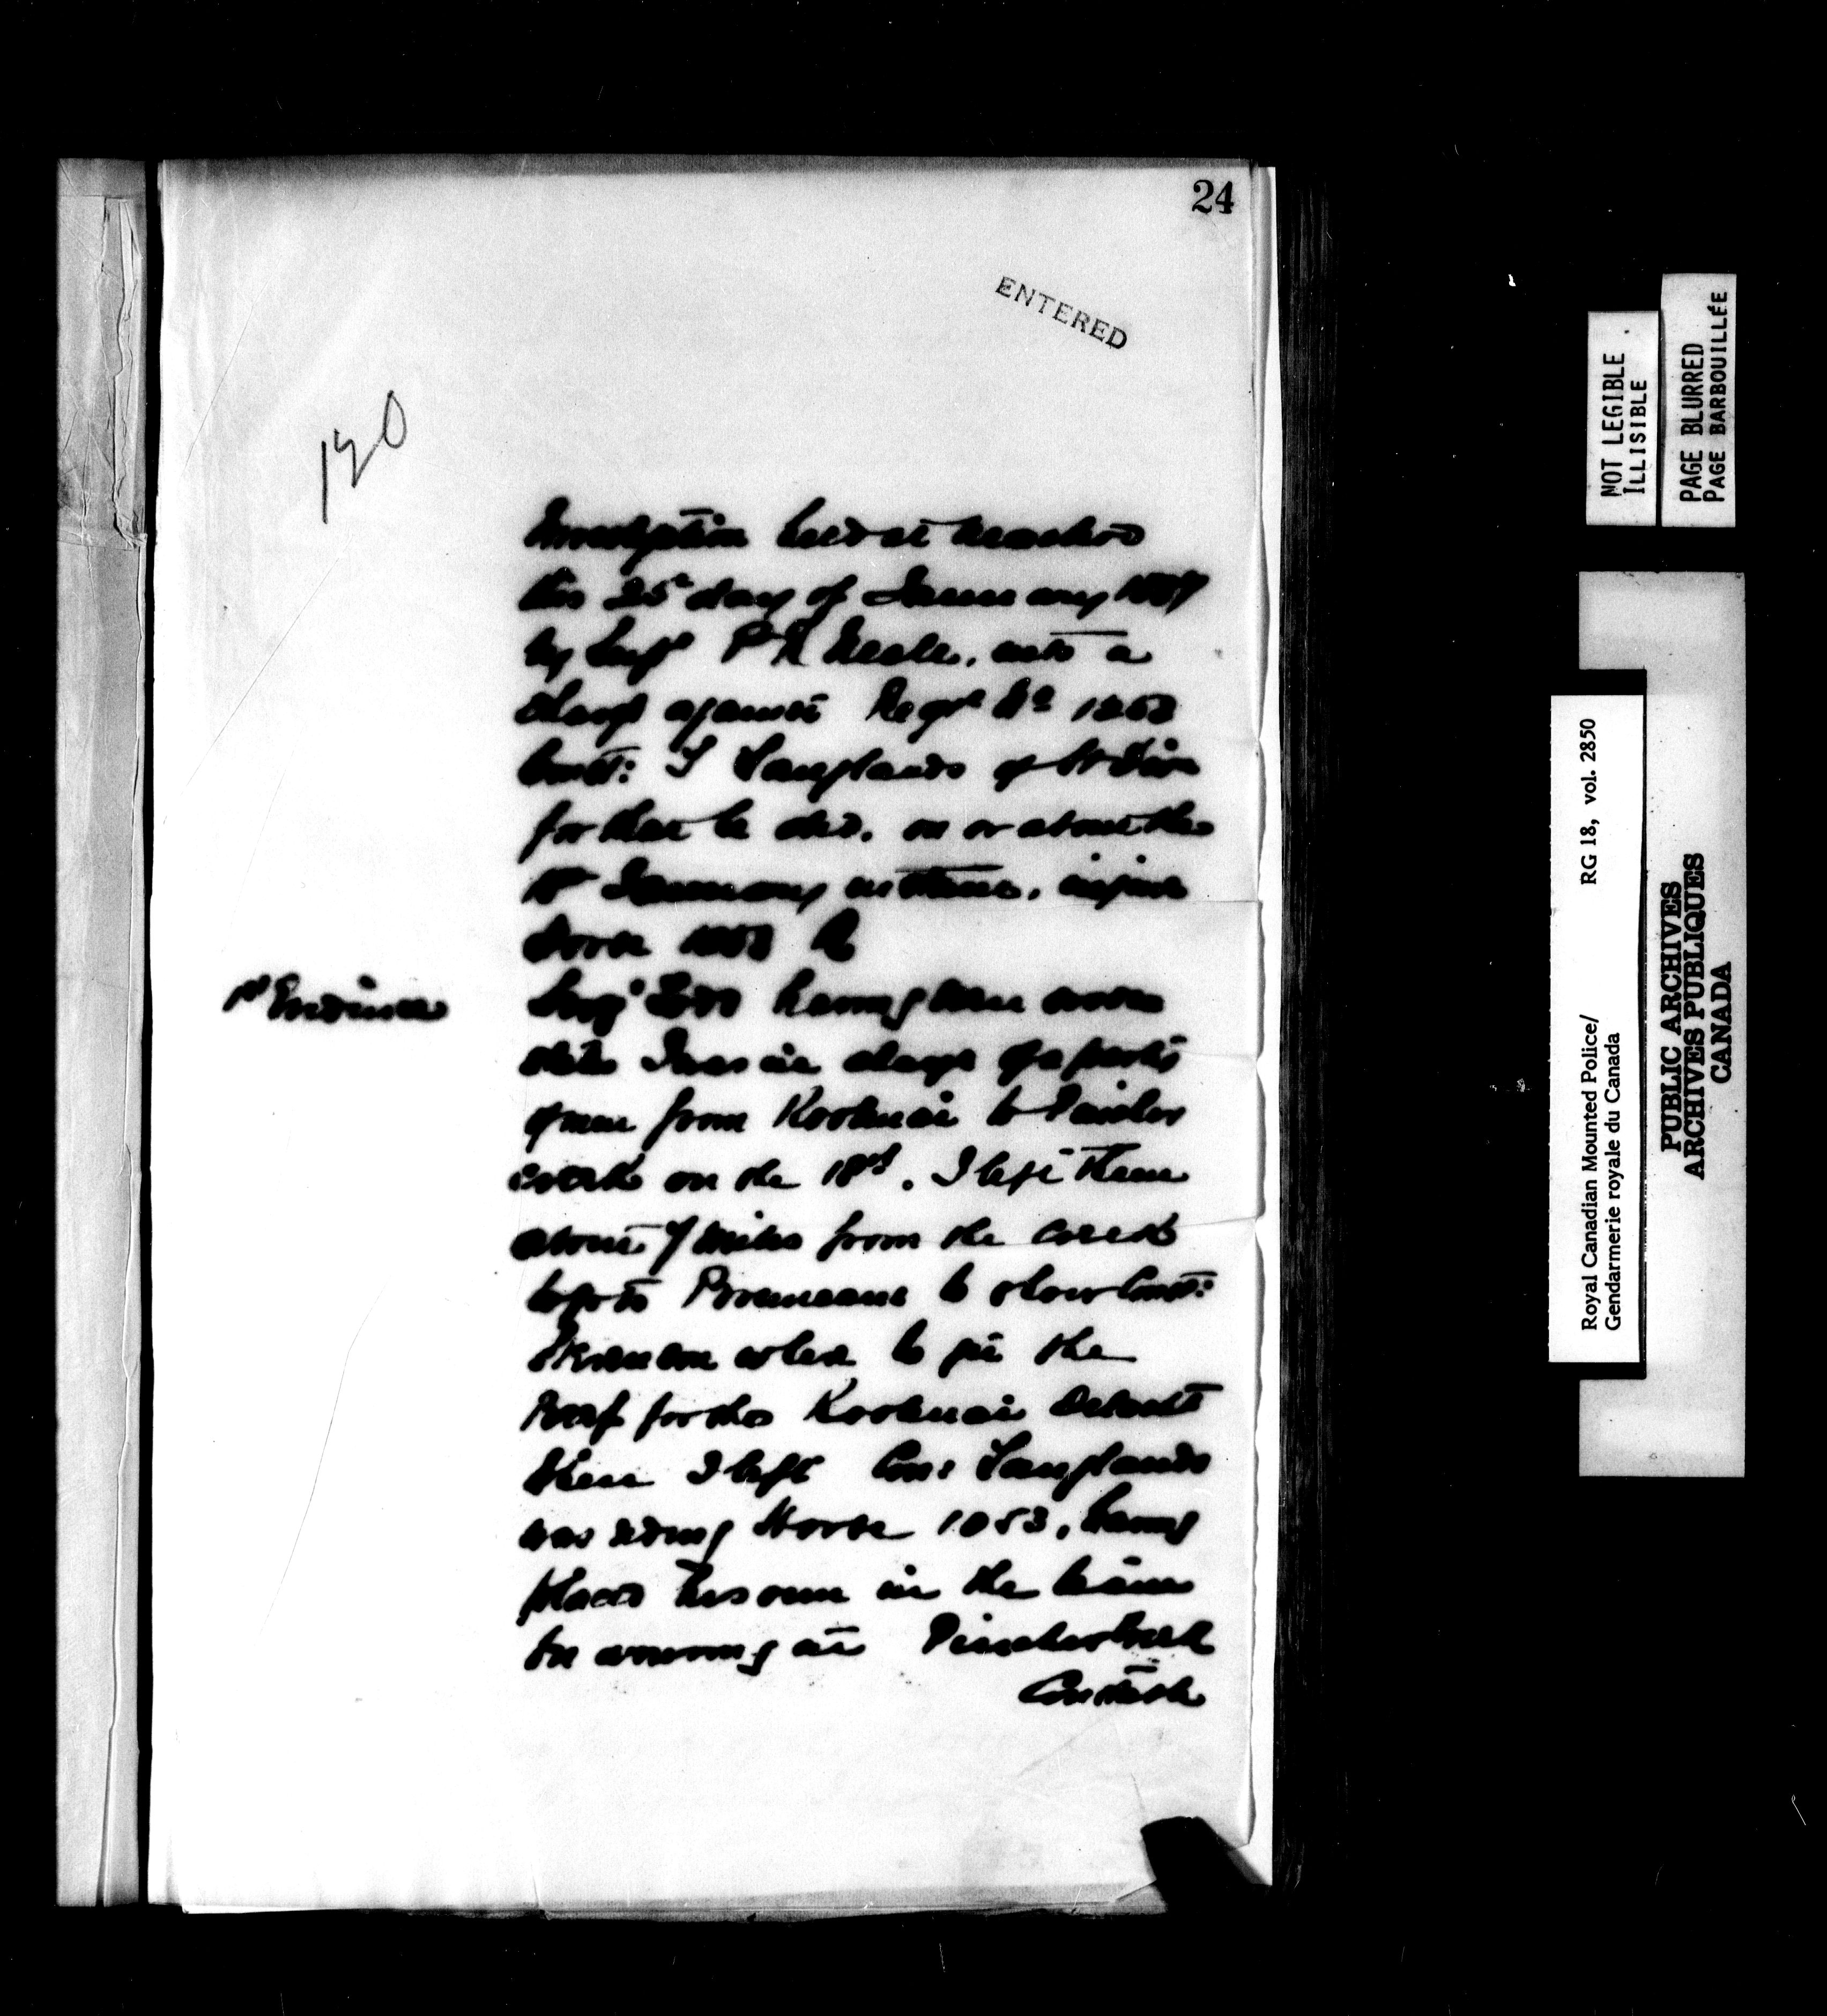 24
ENTERED
120
Investigation held at Macleod
this 25th day of January 1887
by Supt P R Neale, into a
charge against Regtl No
Const: Langlands of Divn
for that he did, on or about the
January instant, injure
Horse
1st Evidence
Sergt being sworn
states I was in charge of a party
of men from Kootenai to Pincher
creek on the 18th. I left them
about 7 miles from the creek
to go to to show Const:
where to get the
Beef for the Kootenai Detacht
When I left Cons: Langlands
was riding Horse 1053, having
placed his own in the team
On arriving at Pincher Creek
NOT LEGIBLE
ILLISIBLE
PAGE BLURRED
PAGE BARBOUILLÉE
Royal Canadian Mounted Police/ RG 18, vol. 2850
Gendarmerie royale du Canada
PUBLIC ARCHIVES
ARCHIVES PUBLIQUES
CANADA